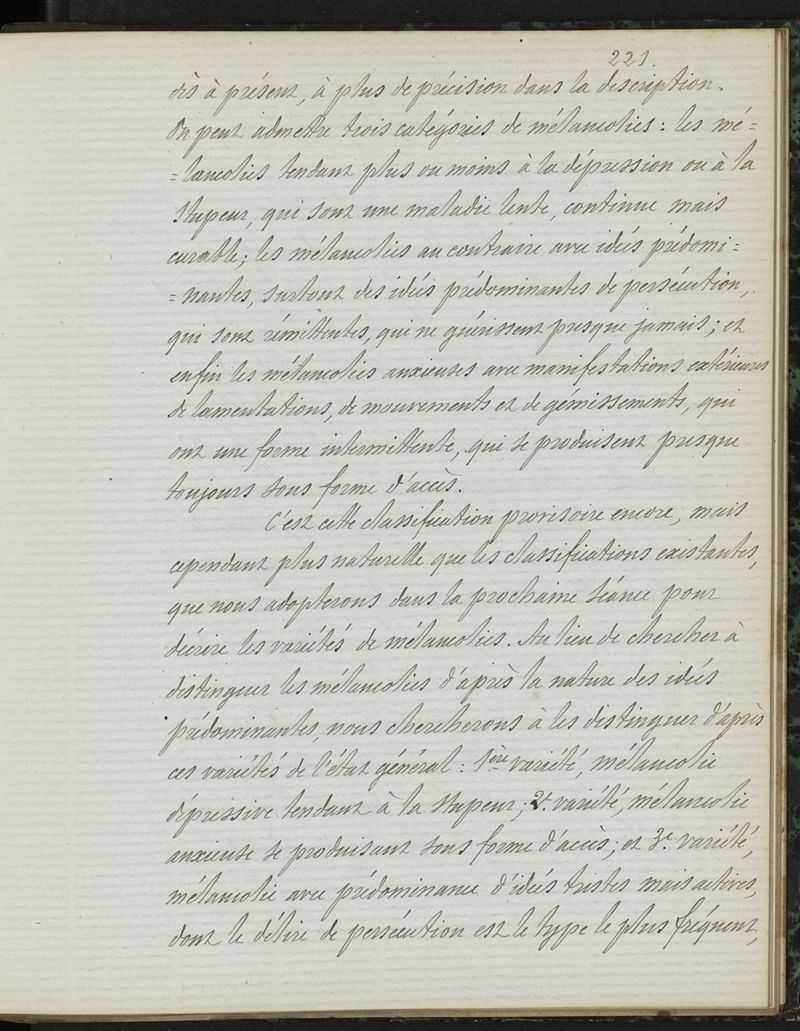 221.
dès à présent, à plus de précision dans la description.
On peut admettre trois catégories de mélancolies : les mé=
=lancolies tendant plus ou moins à la dépression ou à la
stupeur, qui sont une maladie lente, continue mais
curable; les mélancolies au contraire avec idées prédomi=
=nantes, surtout des idées prédominantes de persécution,
qui sont rémittentes, qui ne guérissent presque jamais; et
enfin les mélancolies anxieuses avec manifestations extérieures
de lamentations, de mouvements et de gémissements, qui
ont une forme intermittente, qui se produisent presque
toujours sous forme d'accès.
C'est cette classification provisoire encore, mais
cependant plus naturelle que les classifications existantes,
que nous adopterons dans la prochaine séance pour
décrire les variétés de mélancolies. Au lieu de chercher à
distinguer les mélancolies d'après la nature des idées
prédominantes, nous chercherons à les distinguer d'après
ces variétés de l'état général : 1ère variété, mélancolie
dépressive tendant à la stupeur; 2e variété, mélancolie
anxieuse se produisant sous forme d'accès; et 3e variété,
mélancolie avec prédominance d'idées tristes mais actives,
dont le délire de persécution est le type le plus fréquent,